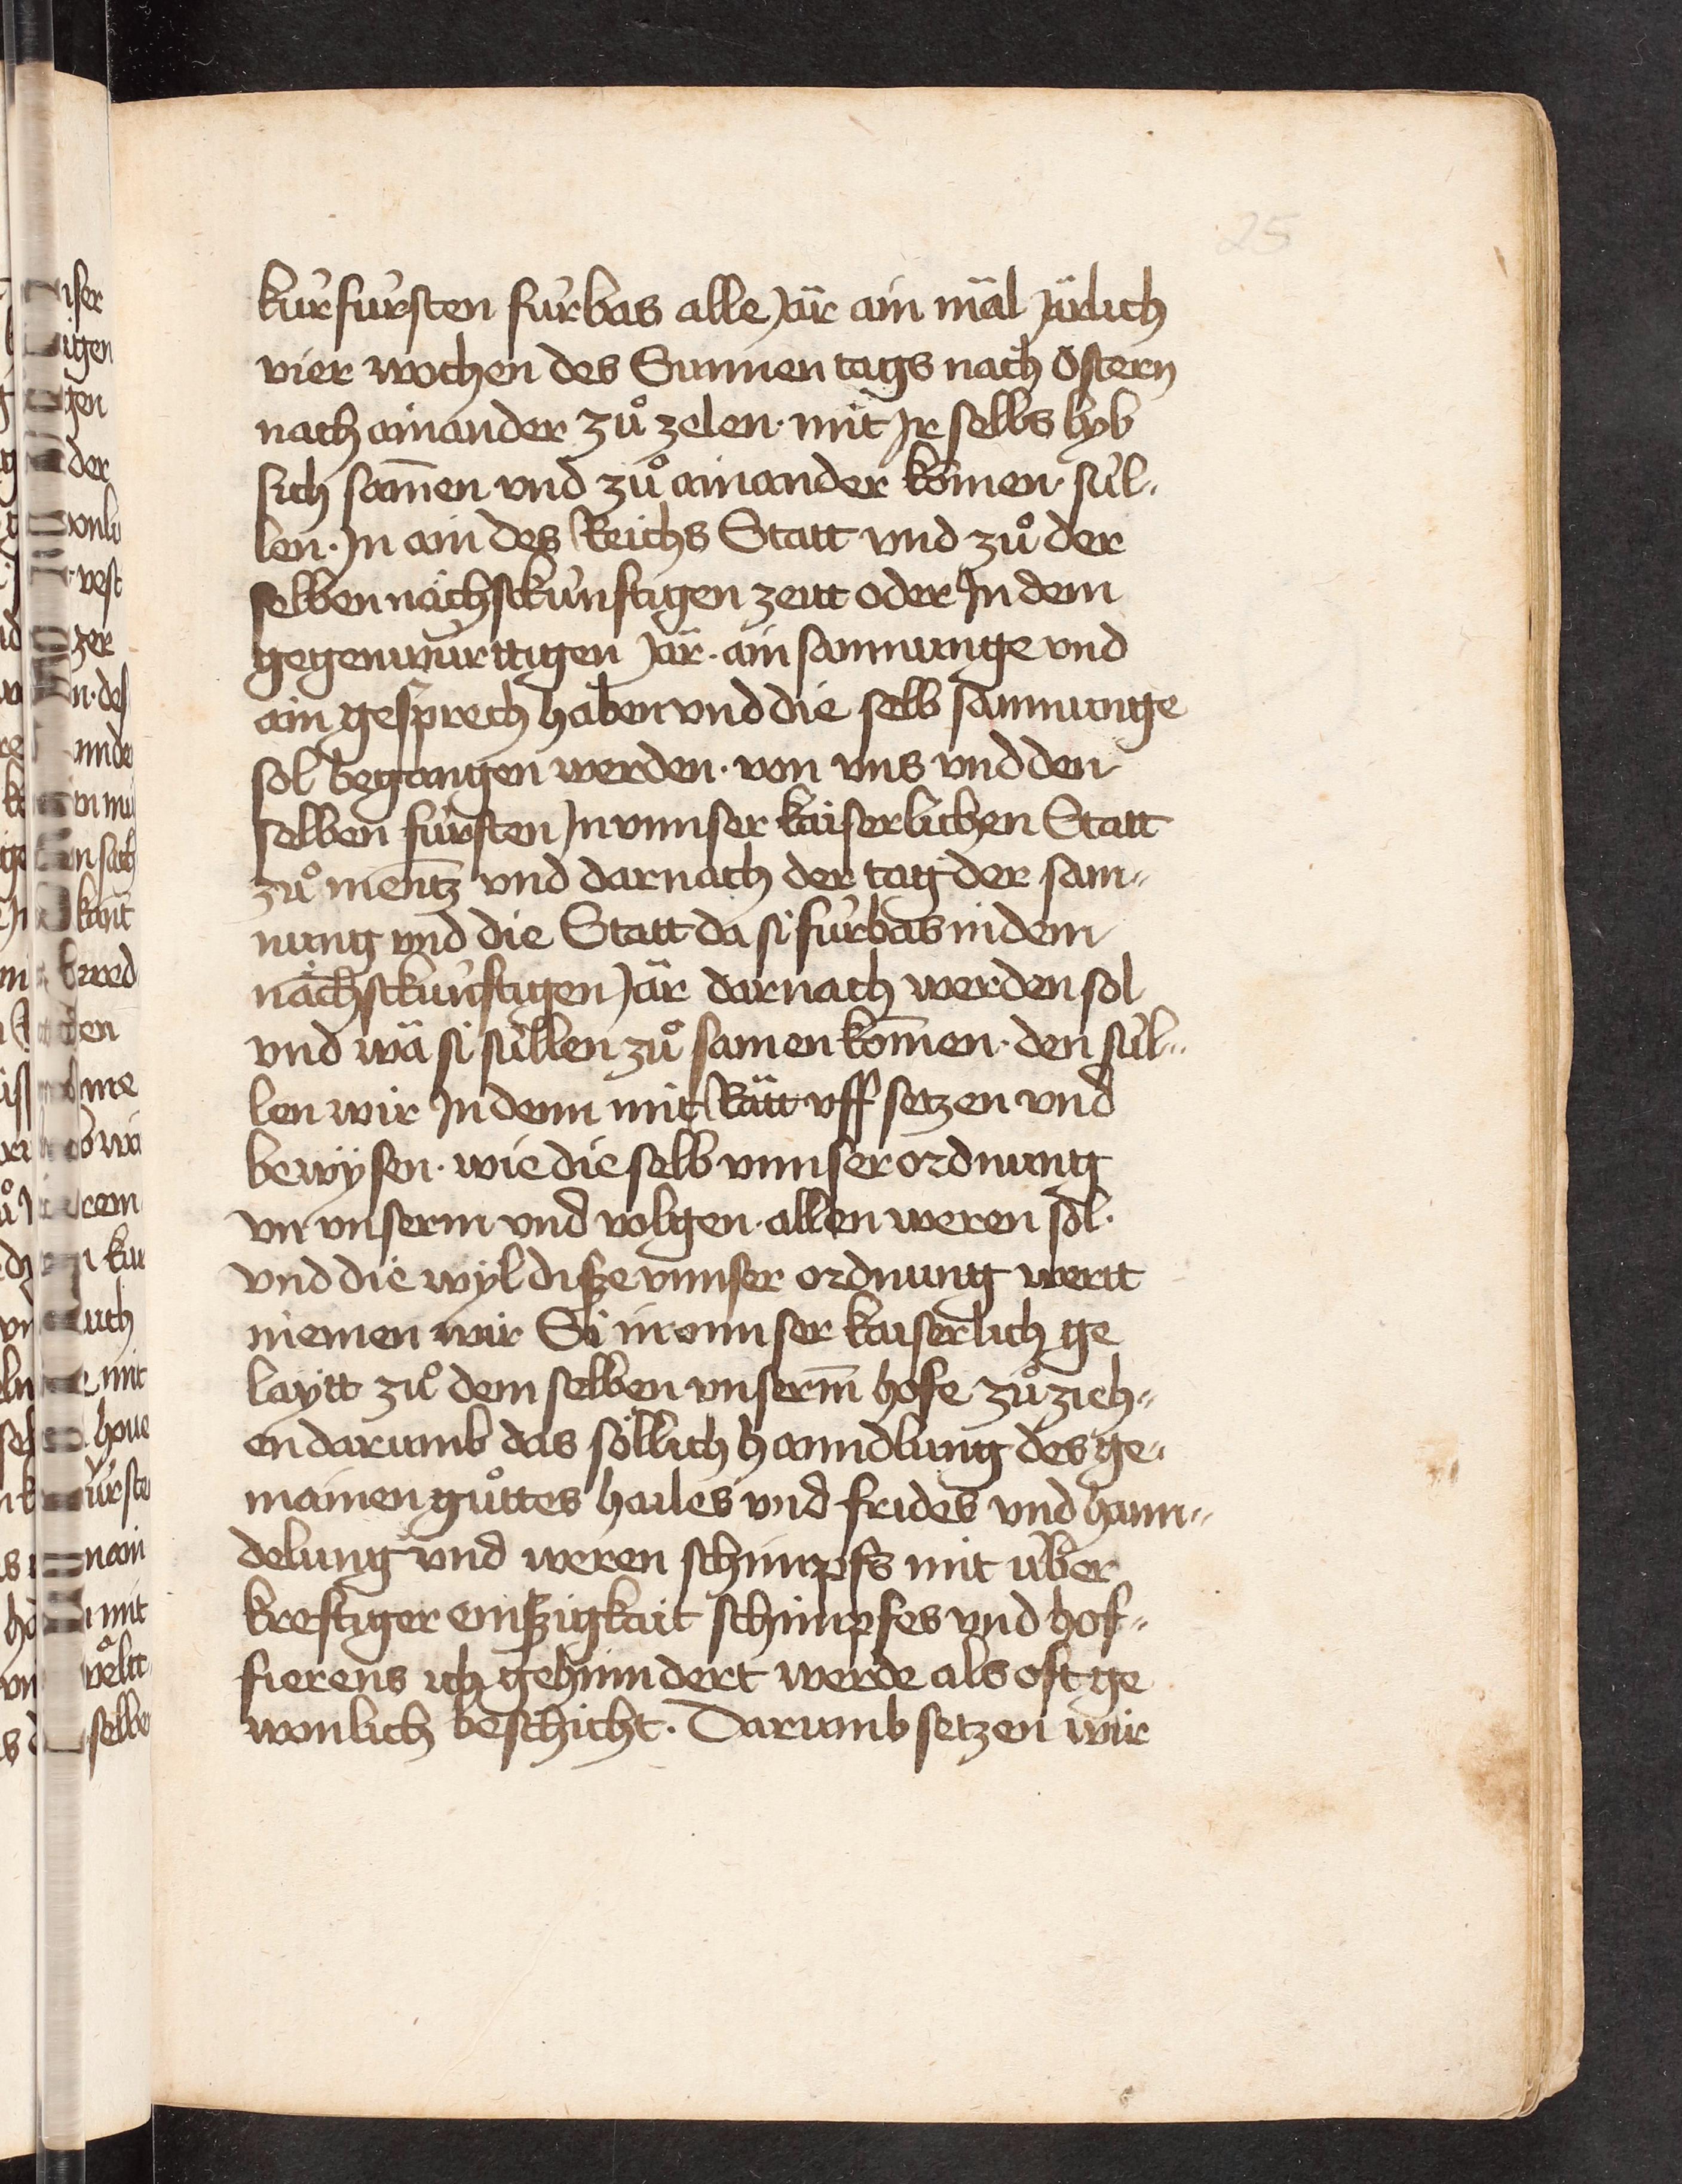 25
kurfursten furbas alle Jär ain mäl Järlich
vier wochen des Sunnen tags nach Ostern
nach ainander zuͦ zelen · mit Jr selbs lyb
sich sam̄en vnd zuͦ ainander kom̄en · sul„
len · Jn ain des Reichs Statt vnd zuͦ der
selben nächstkunftigen zeitt oder Jn dem
gegenwurttigen Jär · ain samnunge vnd
ain gesprech haben vnd die selb samnunge
sol begangen werden · von vns vnd den
selben fursten Jn vnnser kaiserlichen Statt
zuͦ mentz vnd darnach der tag der sam„
nung vnd die Statt da si furbas in dem
nächstkunftigen Jär darnach werden sol
vnd wä si sullen zuͦ samen kom̄en · den sul„
len wir Jn denn mit Rätt vff setzen vnd
bewysen · wie die selb vnnser ordnung
vn vnserm vnd volgen · allen weren sol ·
vnd die wyl disze vnnser ordnung wertt
niemen wir Si in vnnser kaiserlich ge
laytt zuͦ dem selben vnserm̄ hofe zuͦ zieh„
en darumb das söllich hanndlung des ge„
mainen guͦttes hailes vnd frides vnd hann„
delung vnd weren schimpfs mit uber
kreftiger emszigkait schimpfes vnd hof„
fierens ich gehinndert werde als oft ge
wonlich beschicht · Darumb setzen wir